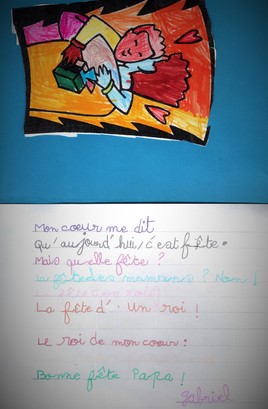 Mon coeur me dit
Qu'aujourd'hui, c'est fête.
Mais quelle fête ?
La fête des mamans ? Non !
La fête d'un roi !
Le roi de mon coeur :
Bonne fête Papa !
gabriel